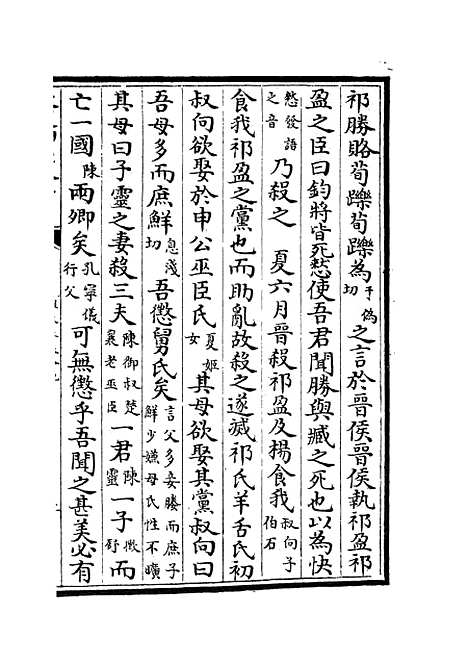 祁勝賂荀躒荀躒為于偽切之言於晉侯晉侯執祁盈祁
盈之臣曰鈞將皆死慭使吾君聞勝與臧之死也以為快
慭發語之音乃殺之　夏六月晉殺祁盈及揚食我叔向子伯石
食我祁盈之黨也而助亂故殺之遂滅祁氏羊舌氏初
叔向欲娶於申公巫臣氏夏姬女其母欲娶其黨叔向曰
吾母多而庶鮮息淺切吾懲舅氏矣言父多妾媵而庶子鮮少嫌母氏性不曠
其母曰子靈之妻殺三夫陳御叔楚襄老巫臣一君陳靈一子徵舒而
亡一國陳兩卿矣孔寧儀行父可無懲乎吾聞之甚美必有